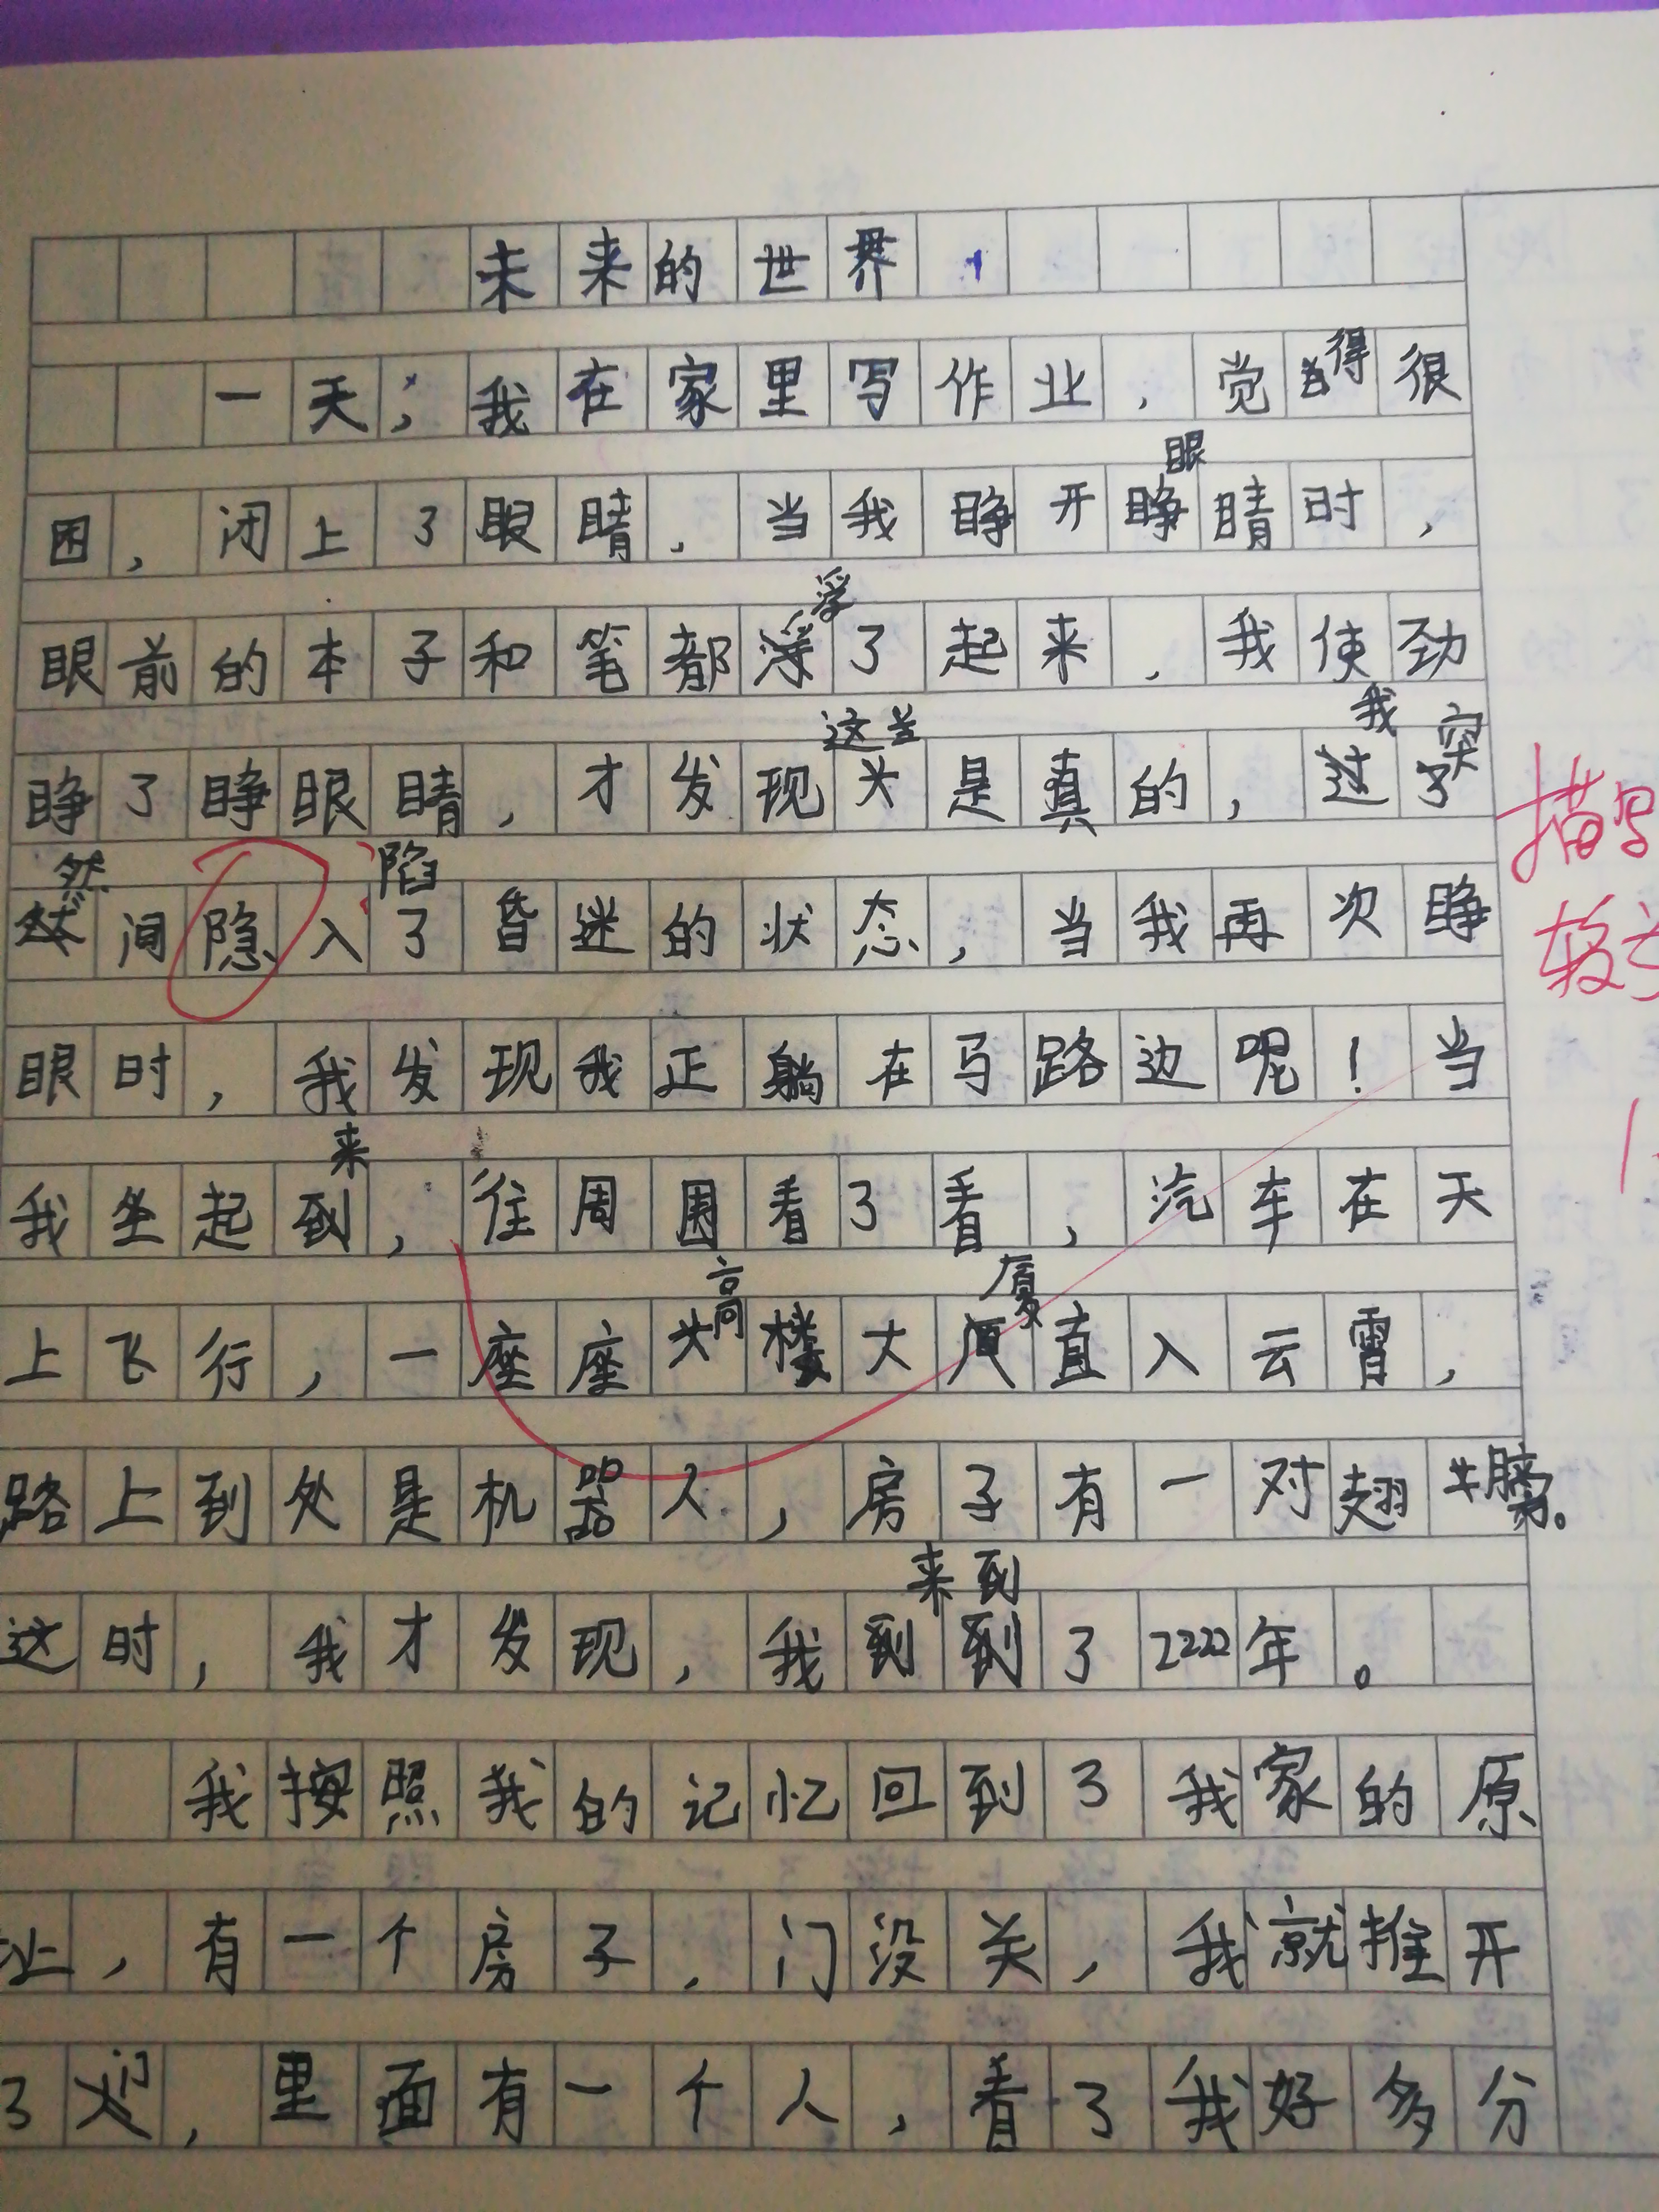 未来的世界
一天，我在家里写作业，觉得很
困，闭上了眼睛，当我睁开眼睛时，
眼前的本子和笔都浮了起来，我使劲
睁了睁眼睛，才发现这些是真的，我突
然间隐入陷了昏迷的状态，当我再次睁
眼时，我发现我正躺在马路边呢！当
我坐起来，往周围看了看，汽车在天
上飞行，一座座高楼大厦直入云霄，
路上到处是机器人，房子有一对翅膀。
这时，我才发现，我来到了2222年。
我按照我的记忆回到了我家的原
址，有一个房子，门没关，我就推开
了门，里面有一个人，看了我好多分
描写
较